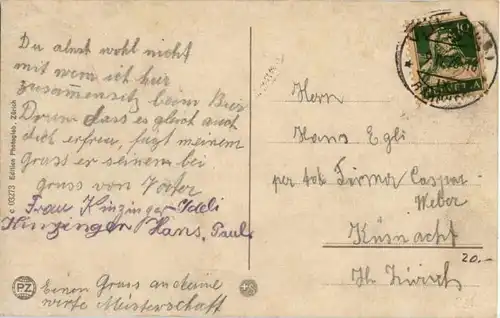 Du ahnst wohl nicht
mit wem ich hier
zusammensitz beim Bier
Drum dass es gleich auch
dich erfreu, fügt meinem
Gruss er seinen bei
gruss von
Frau Kinzinger
Kinzinger Hans, Paul
Einen Gruss an deine
werte Meisterschaft
Herr
Hans Egli
per adr Firma Caspar
Weber
Küsnacht
Kt. Zürich
20.-
c 03273 Edition Photoglob Zürich
PZ
10
HELVETIA